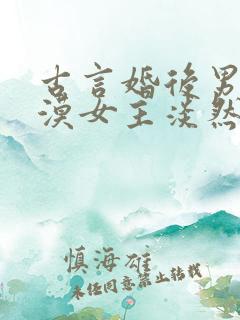 古言婚后男
漠女主淡然
慎海雄
未经同意禁止转载